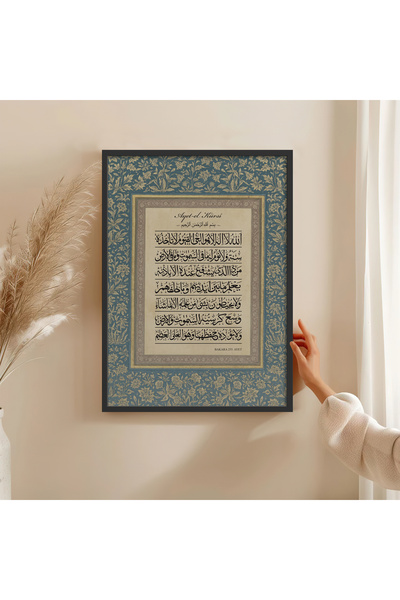 Ayet-el Kürsi
بسم الله الرحمن الرحيم
الله لا اله الا هو الحي القيوم لا تاخذه
سنة ولا نوم له ما في السموات وما في الارض
من ذا الذي يشفع عنده الا باذنه
يعلم ما بين ايديهم وما خلفهم
ولا يحيطون بشئ من علمه الا بما شاء
وسع كرسيه السموات والارض
ولا يؤده حفظهما وهو العلي العظيم